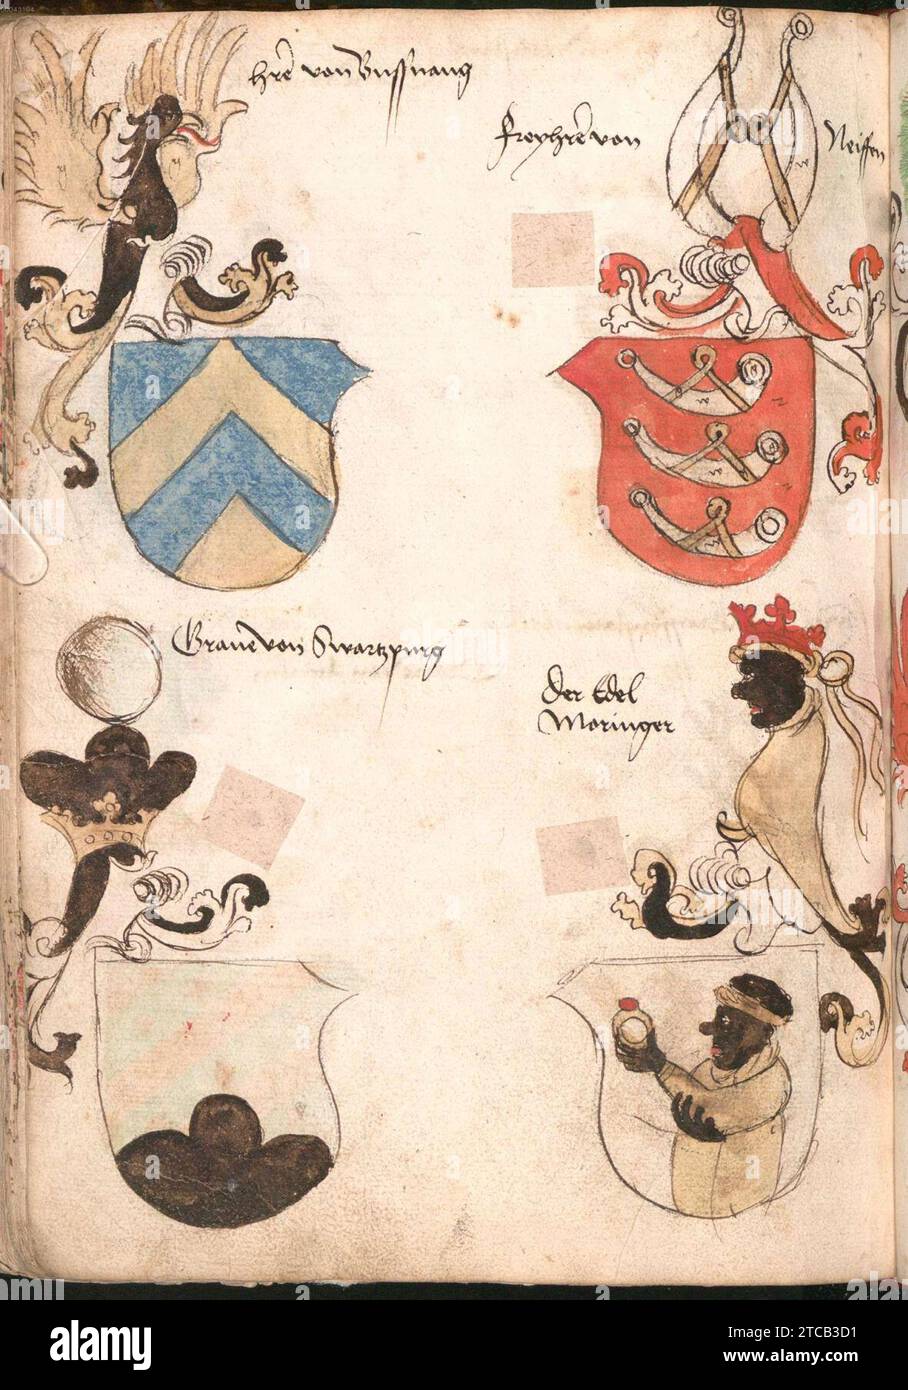 Hre von Bussnang
Freyhre von Neiffen
Graue von Swartzpurg
Der Edel
Moringer
alamy
Image ID: 2TCB3D1
www.alamy.com